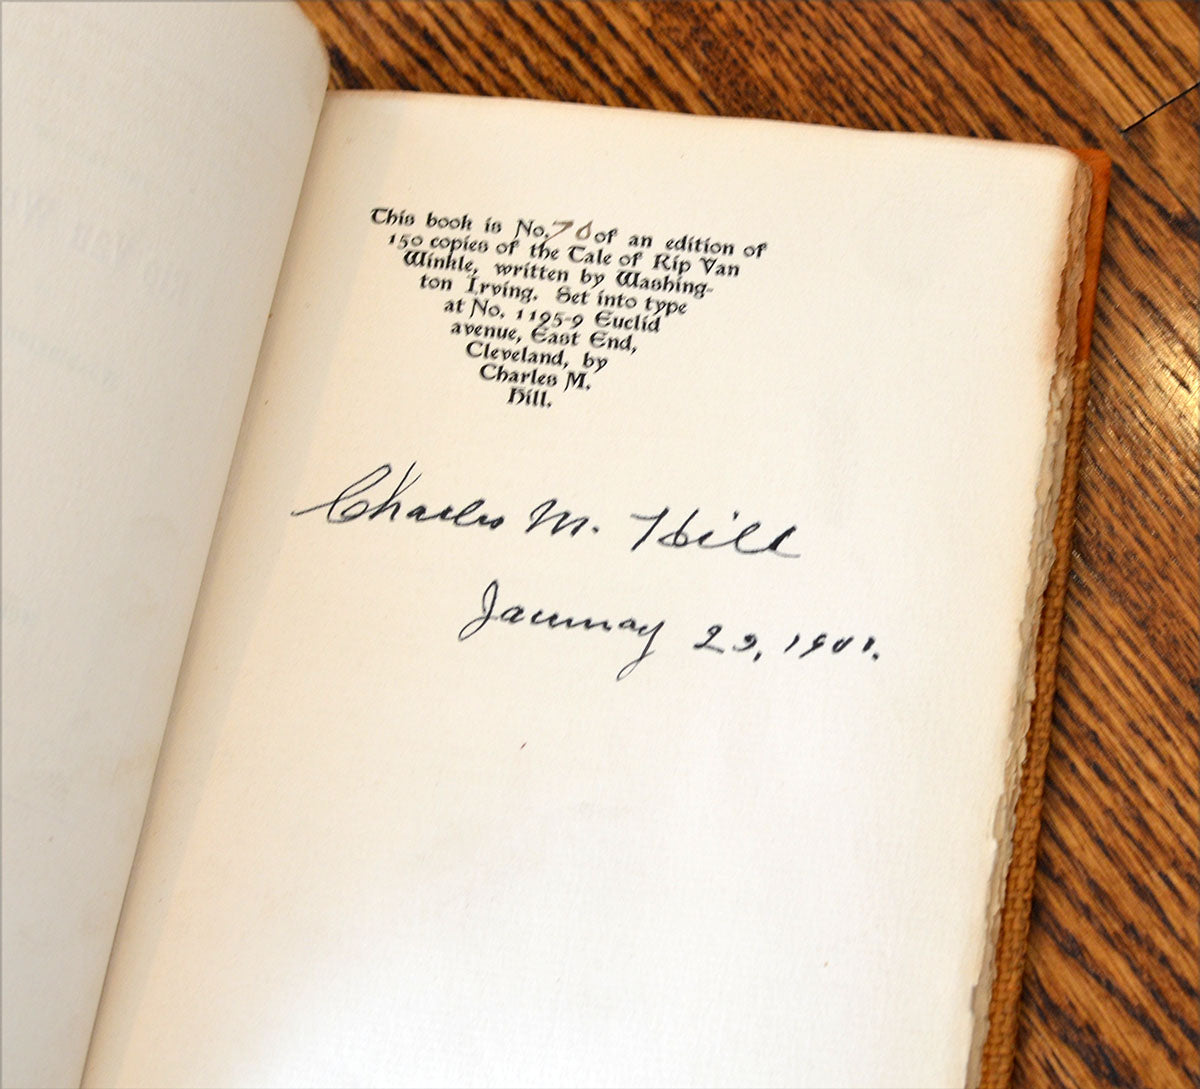 This book is No. 70 of an edition of
150 copies of the Tale of Rip Van
Winkle, written by Washing-
ton Irving. Set into type
at No. 1195-9 Euclid
avenue, East End,
Cleveland, by
Charles M.
Hill.
Charles M. Hill
January 29, 1901.